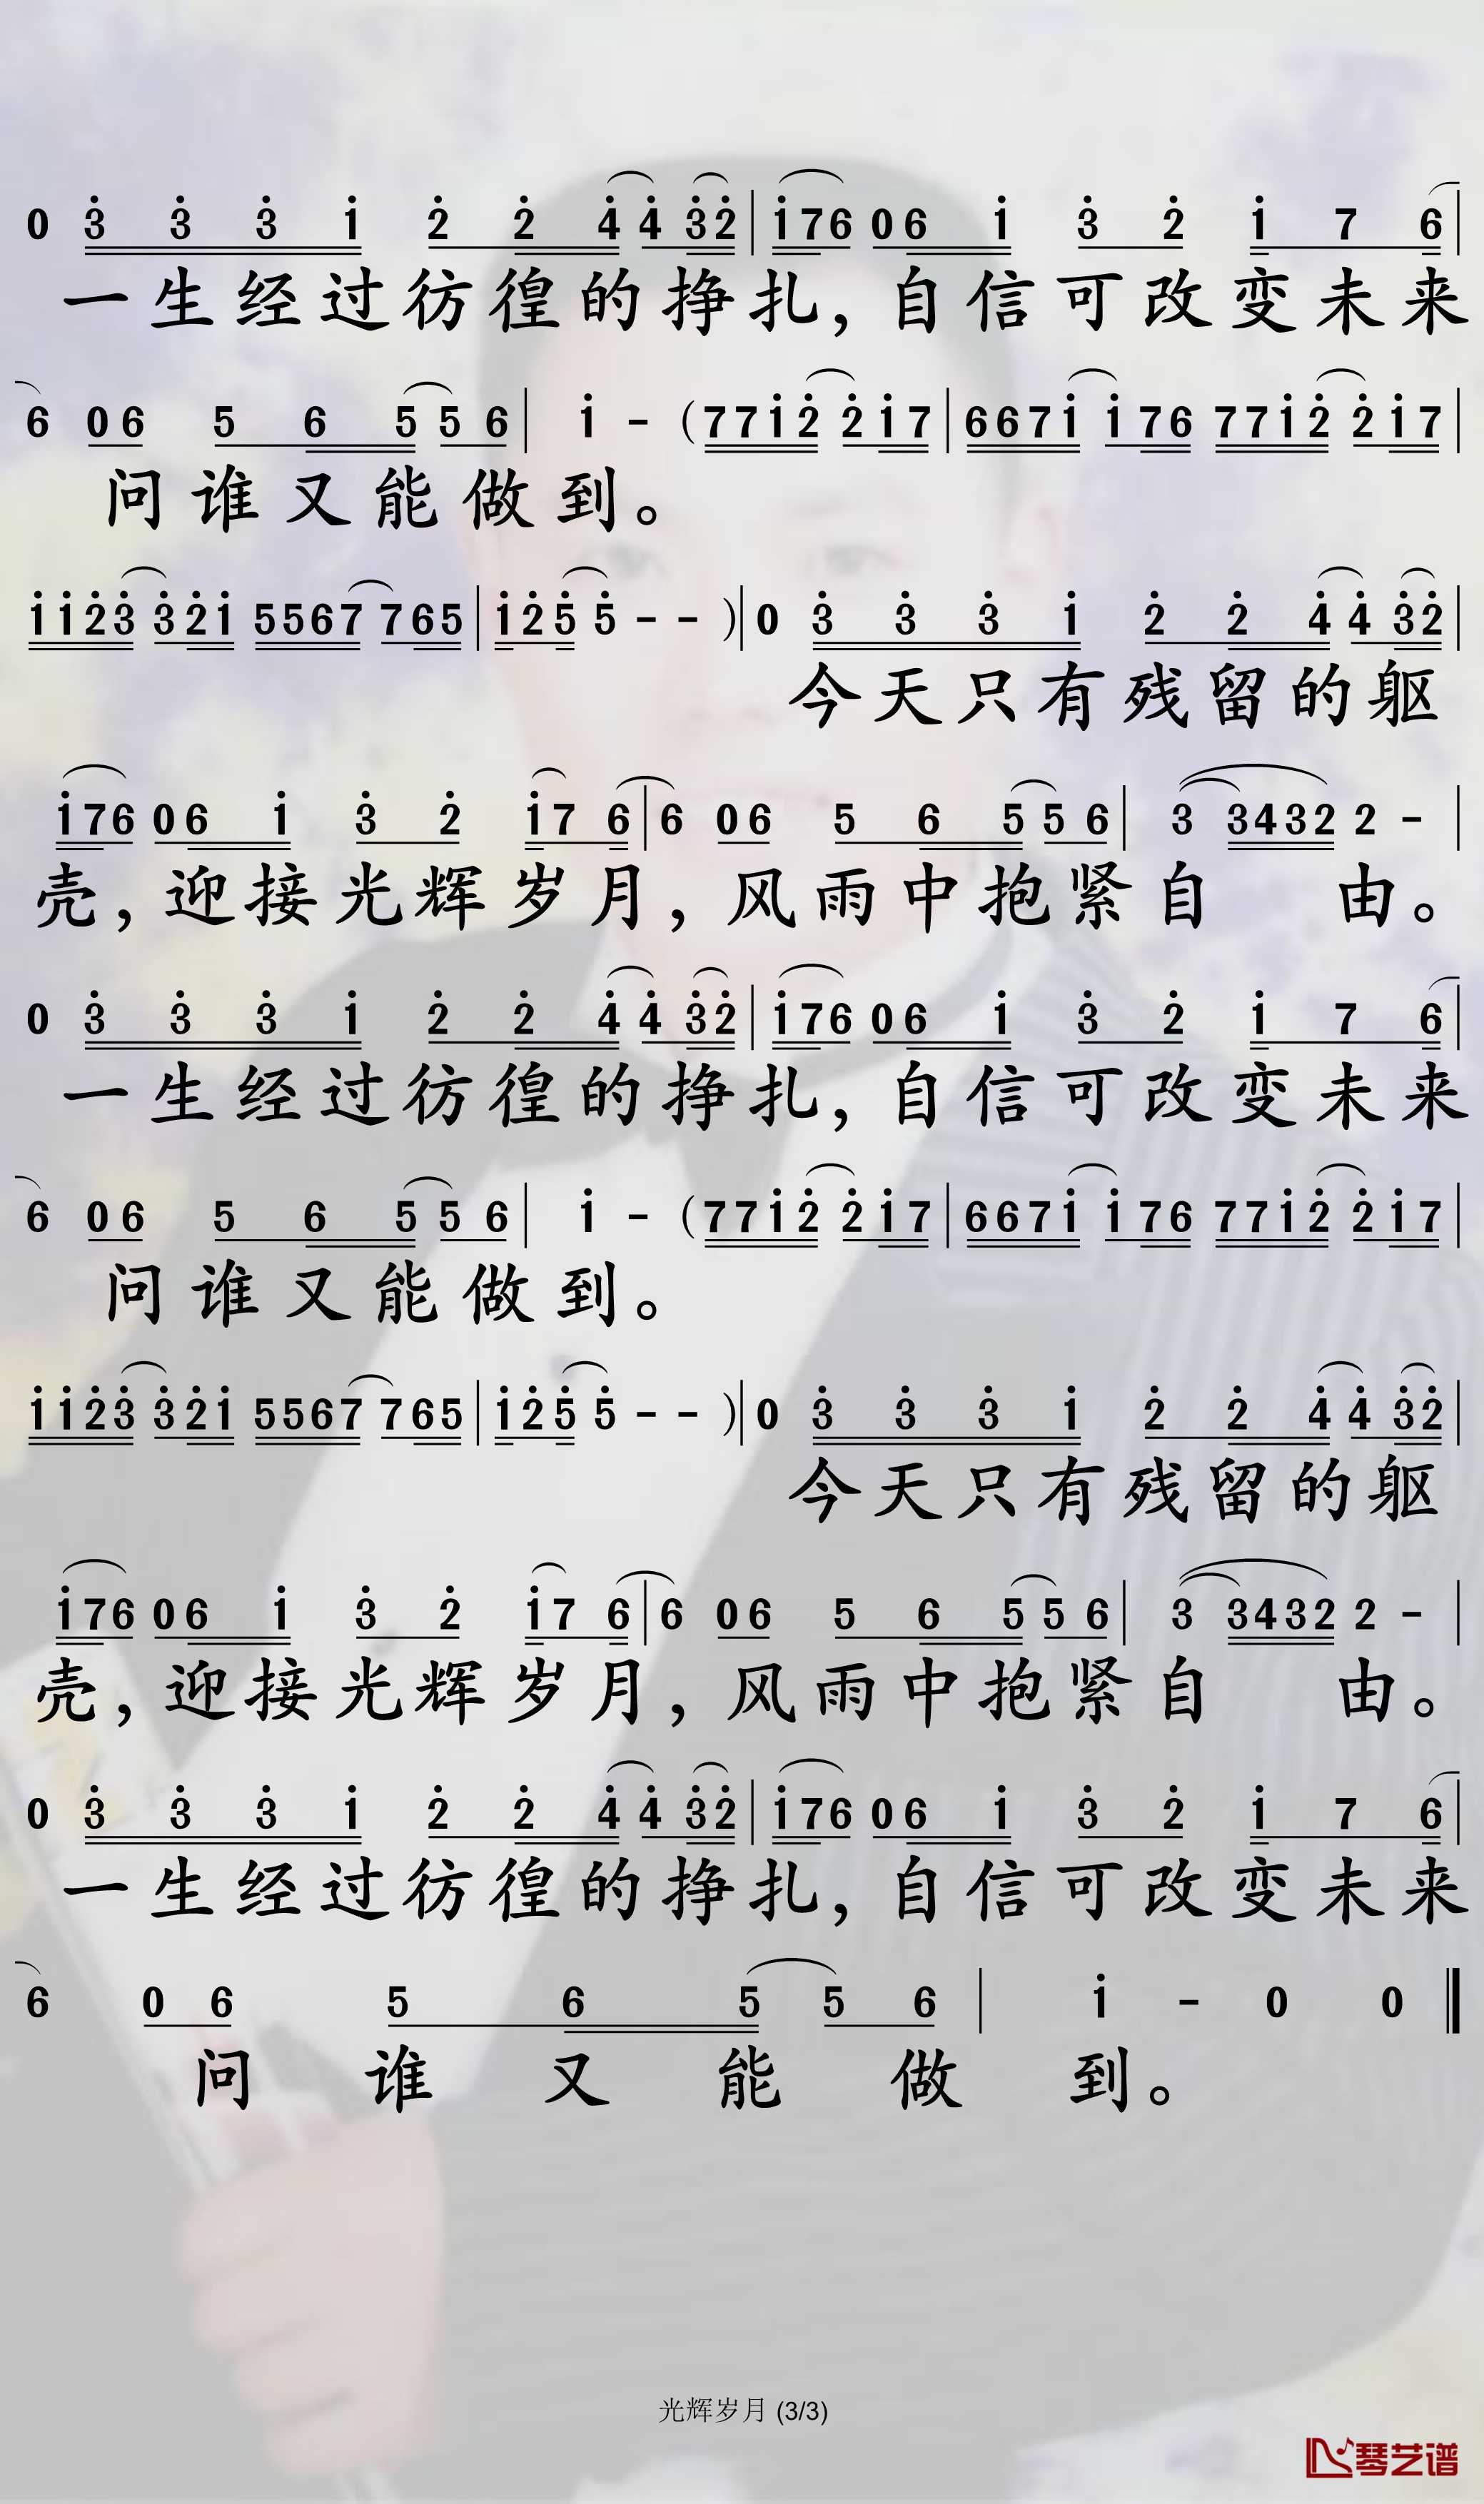 0 3̇ 3̇ 3̇ 1̇ 2̇ 2̇ 4̇ 4̇ 3̇ 2̇ | 1̇ 7 6 0 6 1̇ 3̇ 2̇ 1̇ 7 6 |
一生经过彷徨的挣扎，自信可改变未来
6 0 6 5 6 5 5 6 | 1̇ - (7 7 1̇ 2̇ 2̇ 1̇ 7 | 6 6 7 1̇ 1̇ 7 6 7 7 1̇ 2̇ 2̇ 1̇ 7 |
问谁又能做到。
1̇ 1̇ 2̇ 3̇ 3̇ 2̇ 1̇ 5 5 6 7 7 6 5 | 1̇ 2̇ 5̇ 5̇ - - ) | 0 3̇ 3̇ 3̇ 1̇ 2̇ 2̇ 4̇ 4̇ 3̇ 2̇ |
今天只有残留的躯
1̇ 7 6 0 6 1̇ 3̇ 2̇ 1̇ 7 6 | 6 0 6 5 6 5 5 6 | 3 3 4 3 2 2 - |
壳，迎接光辉岁月，风雨中抱紧自 由。
0 3̇ 3̇ 3̇ 1̇ 2̇ 2̇ 4̇ 4̇ 3̇ 2̇ | 1̇ 7 6 0 6 1̇ 3̇ 2̇ 1̇ 7 6 |
一生经过彷徨的挣扎，自信可改变未来
6 0 6 5 6 5 5 6 | 1̇ - (7 7 1̇ 2̇ 2̇ 1̇ 7 | 6 6 7 1̇ 1̇ 7 6 7 7 1̇ 2̇ 2̇ 1̇ 7 |
问谁又能做到。
1̇ 1̇ 2̇ 3̇ 3̇ 2̇ 1̇ 5 5 6 7 7 6 5 | 1̇ 2̇ 5̇ 5̇ - - ) | 0 3̇ 3̇ 3̇ 1̇ 2̇ 2̇ 4̇ 4̇ 3̇ 2̇ |
今天只有残留的躯
1̇ 7 6 0 6 1̇ 3̇ 2̇ 1̇ 7 6 | 6 0 6 5 6 5 5 6 | 3 3 4 3 2 2 - |
壳，迎接光辉岁月，风雨中抱紧自 由。
0 3̇ 3̇ 3̇ 1̇ 2̇ 2̇ 4̇ 4̇ 3̇ 2̇ | 1̇ 7 6 0 6 1̇ 3̇ 2̇ 1̇ 7 6 |
一生经过彷徨的挣扎，自信可改变未来
6 0 6 5 6 5 5 6 | 1̇ - 0 0 ‖
问谁又能做到。
光辉岁月 (3/3)
琴艺谱